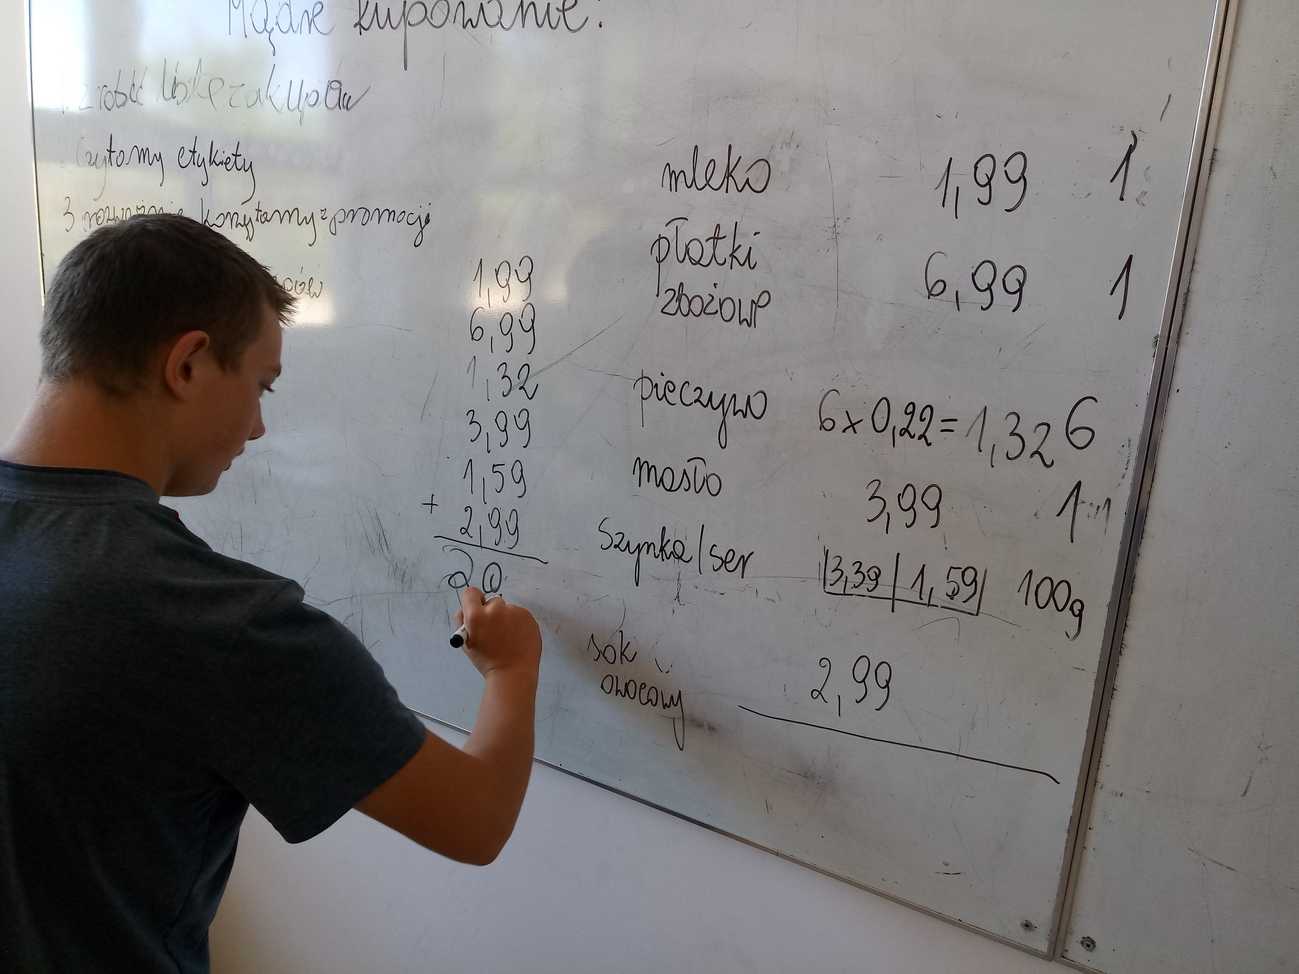 Mądre kupowanie:
zrobić listę zakupów
Czytamy etykiety
3 rozważnie korzystamy z promocji
1,99
6,99
1,32
3,99
1,59
+ 2,99
20
mleko 1,99 1
płatki
zbożowe 6,99 1
pieczywo 6 x 0,22 = 1,32 6
masło 3,99 1
szynka/ser 3,39 | 1,59 100g
sok
owocowy 2,99